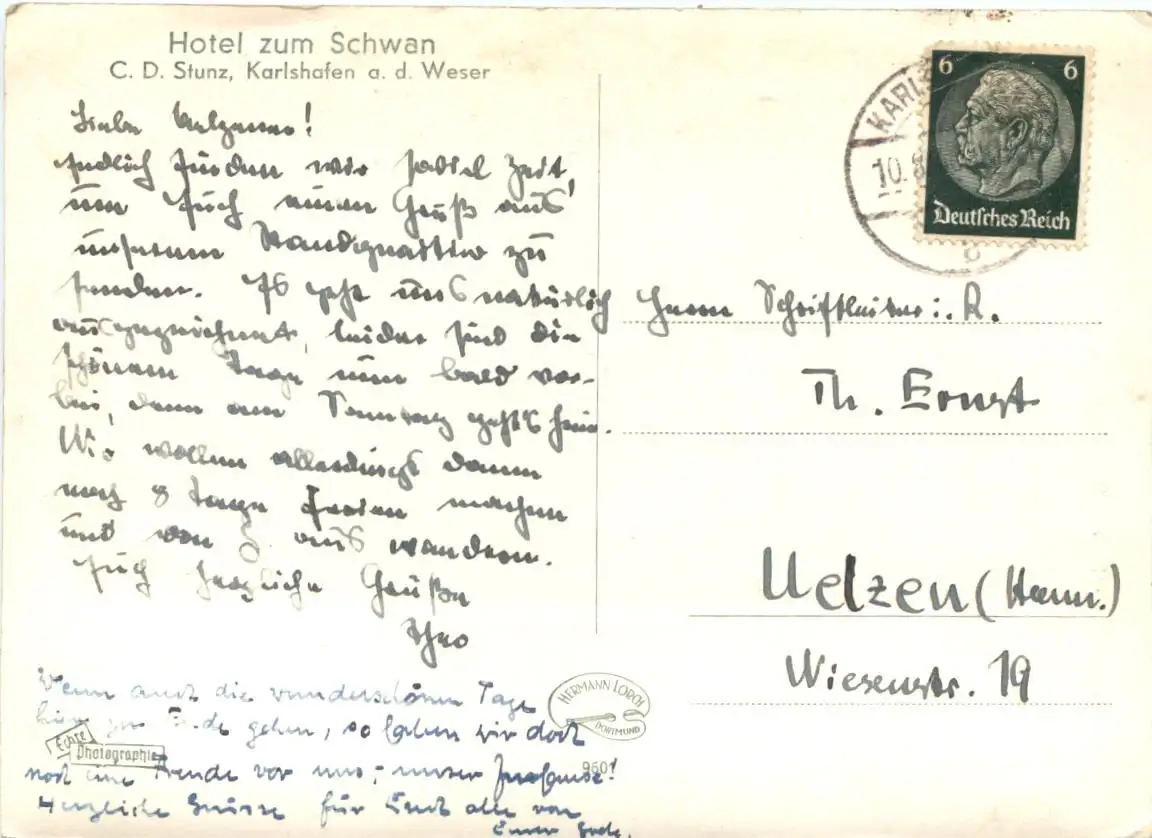 Hotel zum Schwan
C. D. Stunz, Karlshafen a. d. Weser
Liebe Uelzener!
Endlich finden wir soviel Zeit,
um Euch einen Gruß aus
unserem Standquartier zu
senden. Es geht uns natürlich
ausgezeichnet, leider sind die
schönen Tage nun bald vor-
bei, denn am Sonntag geht's heim.
Wir wollen allerdings dann
noch 8 Tage Ferien machen
und von H. aus wandern.
Euch herzliche Grüße
Theo
Wenn auch die wunderschönen Tage
hier zu Ende gehen, so haben wir doch
noch eine Freude vor uns, unser Zuhause!
Herzliche Grüsse für Euch alle von
Eurer
Echte
Photographie
HERMANN LORCH
DORTMUND
9601
KARLS
10.
b
6 6
Deutsches Reich
Herrn Schriftleiter i. R.
Th. Ernst
Uelzen (Hann.)
Wiesenstr. 19